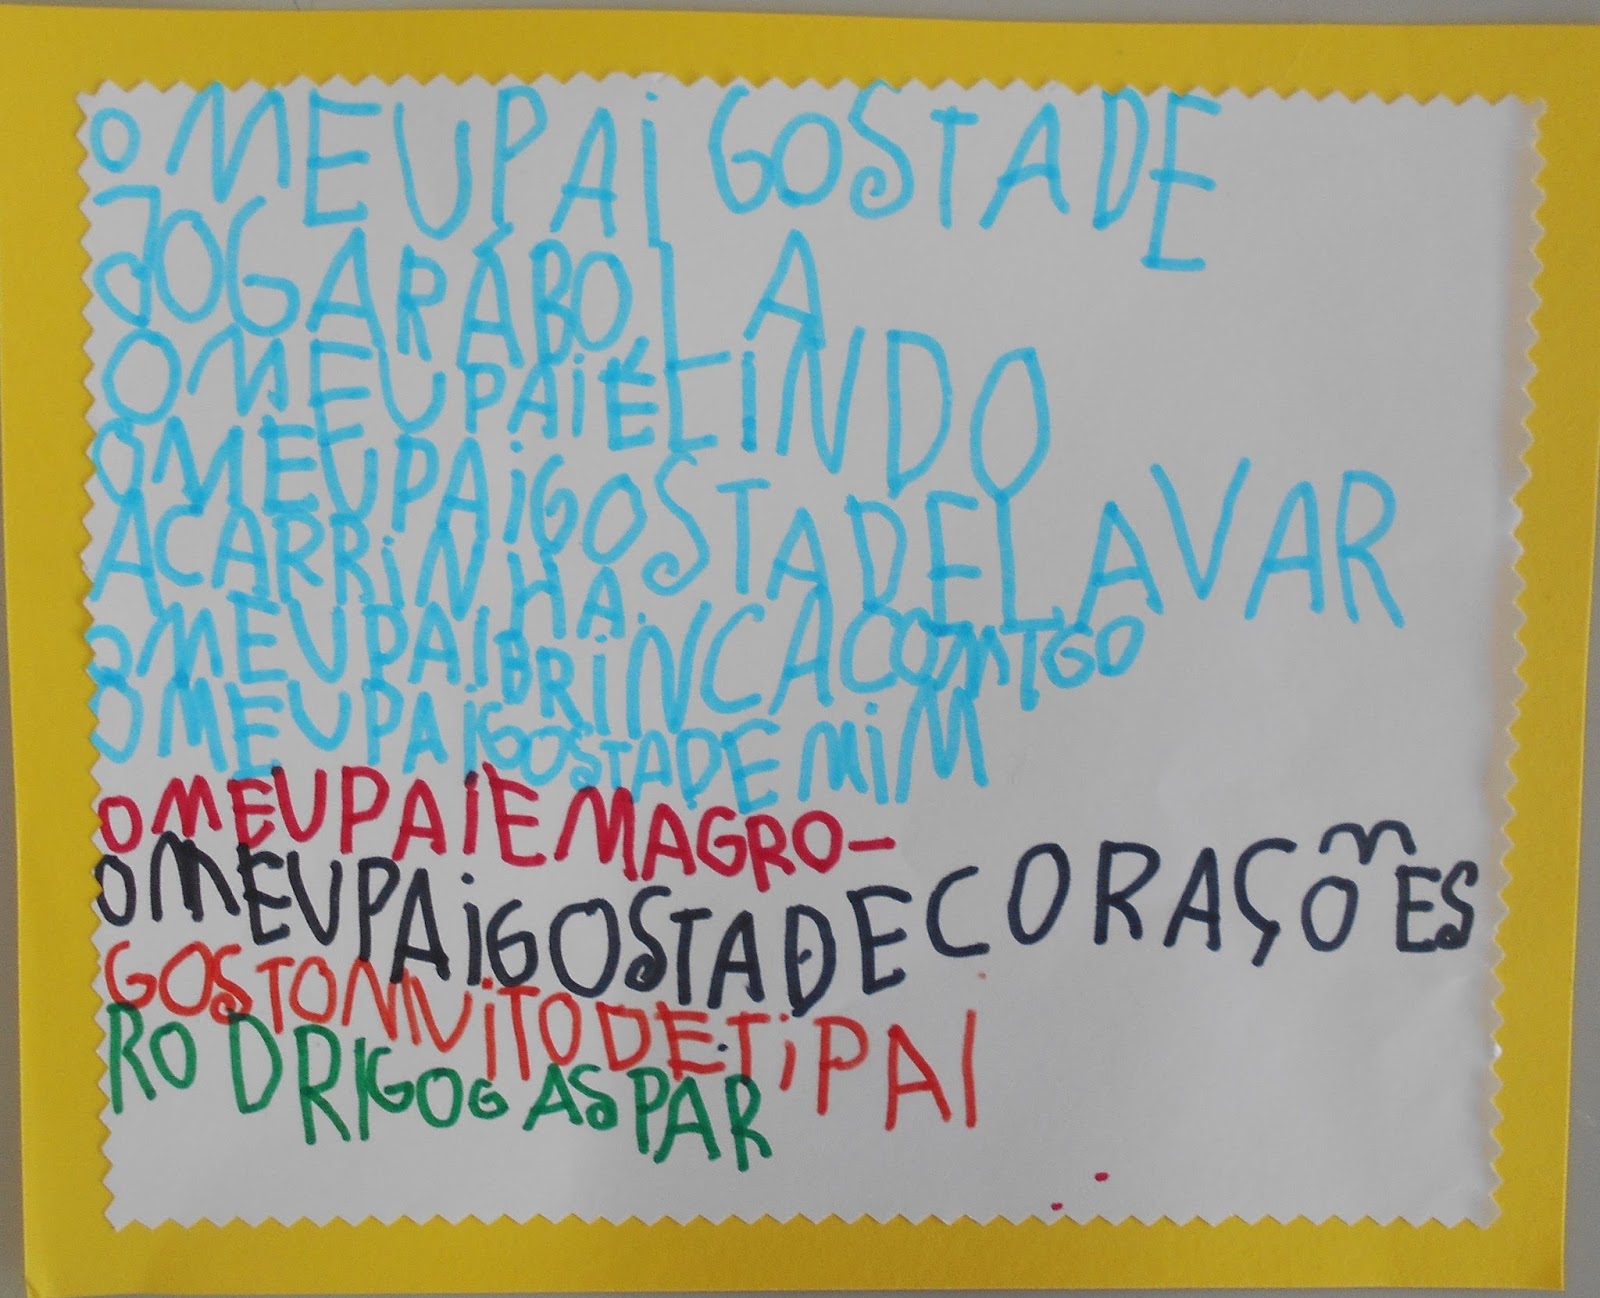 O MEU PAI GOSTA DE
JOGAR Á BOLA
O MEU PAI É LINDO
O MEU PAI GOSTA DE LAVAR
A CARRINHA.
O MEU PAI BRINCA COMIGO
O MEU PAI GOSTA DE MIM
O MEU PAI E MAGRO-
O MEU PAI GOSTA DE CORAÇÕES
GOSTO MUITO DE TI PAI
RODRIGO GASPAR